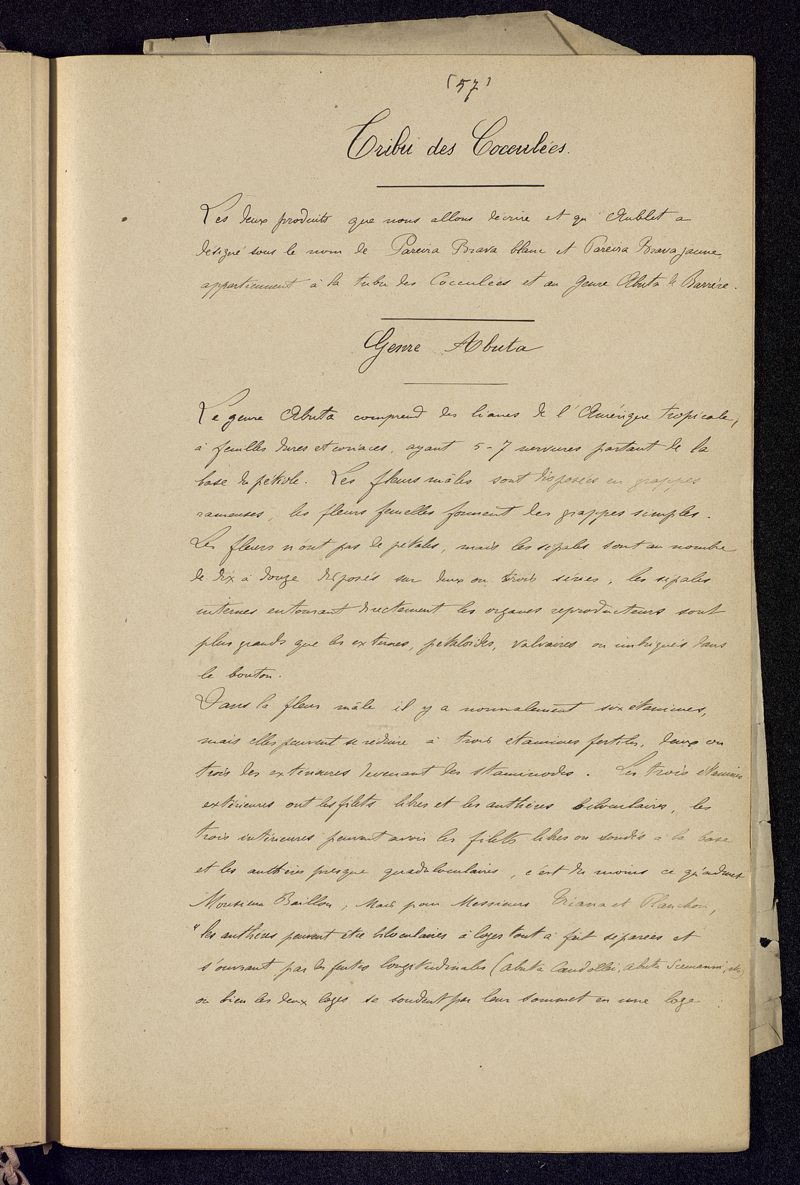 (57)
Tribu des Cocculées.
Les deux produits que nous allons décrire et qu'Aublet a
désigné sous le nom de Pareira Brava blanc et Pareira Brava jaune
appartiennent à la tribu des Cocculées et au genre Abuta de Barrère.
Genre Abuta
Le genre Abuta comprend des lianes de l'Amérique tropicale,
à feuilles dures et coriaces, ayant 5-7 nervures partant de la
base du pétiole. Les fleurs mâles sont disposées en grappes
rameuses, les fleurs femelles forment des grappes simples.
Les fleurs n'ont pas de pétales, mais les sépales sont au nombre
de dix à douze disposés sur deux ou trois séries, les sépales
internes entourant directement les organes reproducteurs sont
plus grands que les externes, pétaloïdes, valvaires ou imbriqués dans
le bouton.
Dans la fleur mâle il y a normalement six étamines,
mais elles peuvent se réduire à trois étamines fertiles, deux ou
trois des extérieures devenant des staminodes. Les trois étamines
extérieures ont les filets libres et les anthères biloculaires, les
trois intérieures peuvent avoir les filets libres ou soudés à la base
et les anthères presque quadriloculaires, c'est du moins ce qu'admet
Monsieur Baillon, Mais pour Messieurs Triana et Planchon,
"les anthères peuvent être biloculaires à loges tout à fait séparées et
s'ouvrant par des fentes longitudinales (Abuta Candollei, Abuta Seemanni, etc)
ou bien les deux loges se soudent par leur sommet en une loge